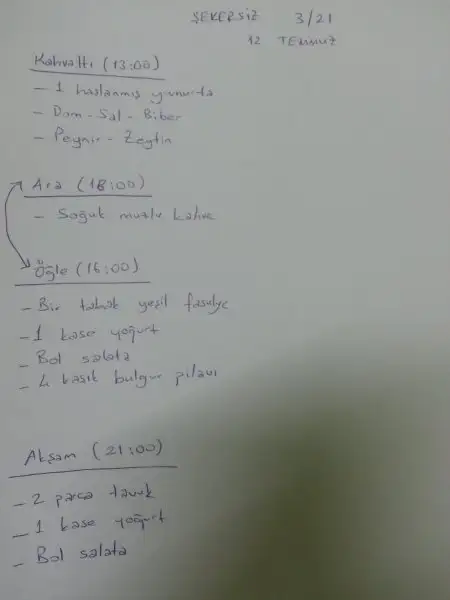 ŞEKERSİZ 3/21
12 TEMMUZ
Kahvaltı (13:00)
- 1 haşlanmış yumurta
- Dom - Sal - Biber
- Peynir - Zeytin
Ara (18:00)
- Soğuk muzlu kahve
Öğle (16:00)
- Bir tabak yeşil fasulye
- 1 kase yoğurt
- Bol salata
- 4 kaşık bulgur pilavı
Akşam (21:00)
- 2 parça tavuk
- 1 kase yoğurt
- Bol salata